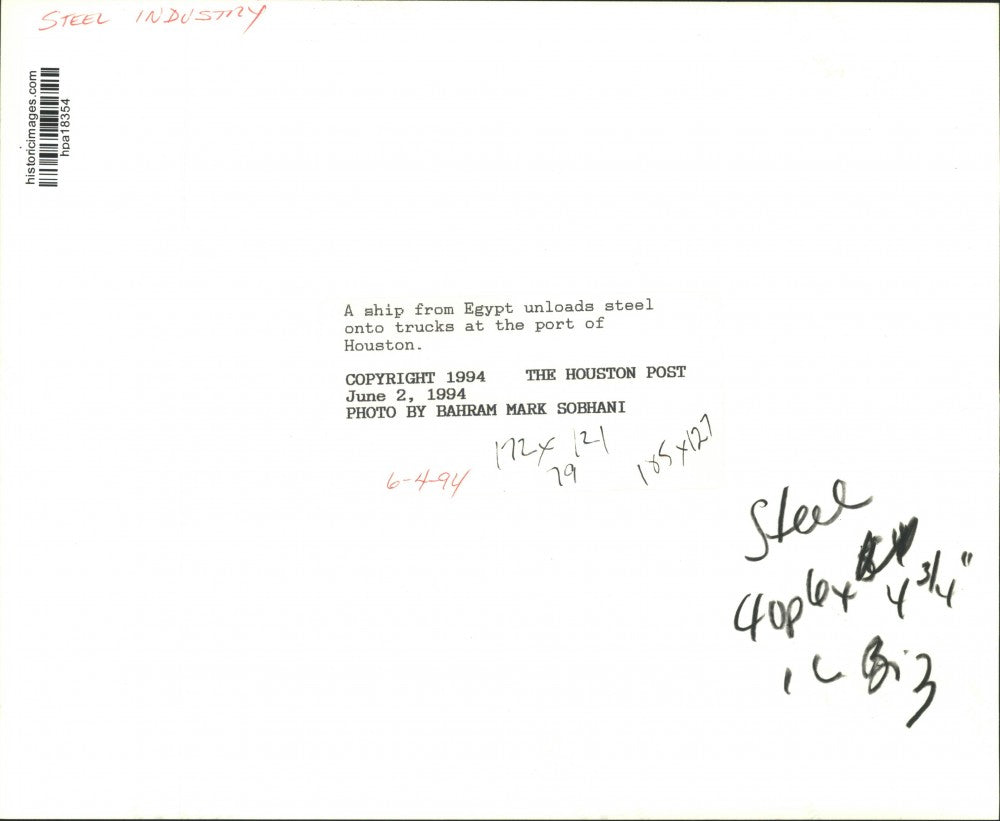 STEEL INDUSTRY
historicimages.com
hpa18354
A ship from Egypt unloads steel
onto trucks at the port of
Houston.
COPYRIGHT 1994 THE HOUSTON POST
June 2, 1994
PHOTO BY BAHRAM MARK SOBHANI
172x 121
79
185x127
6-4-94
Steel
4 3/4"
Biz